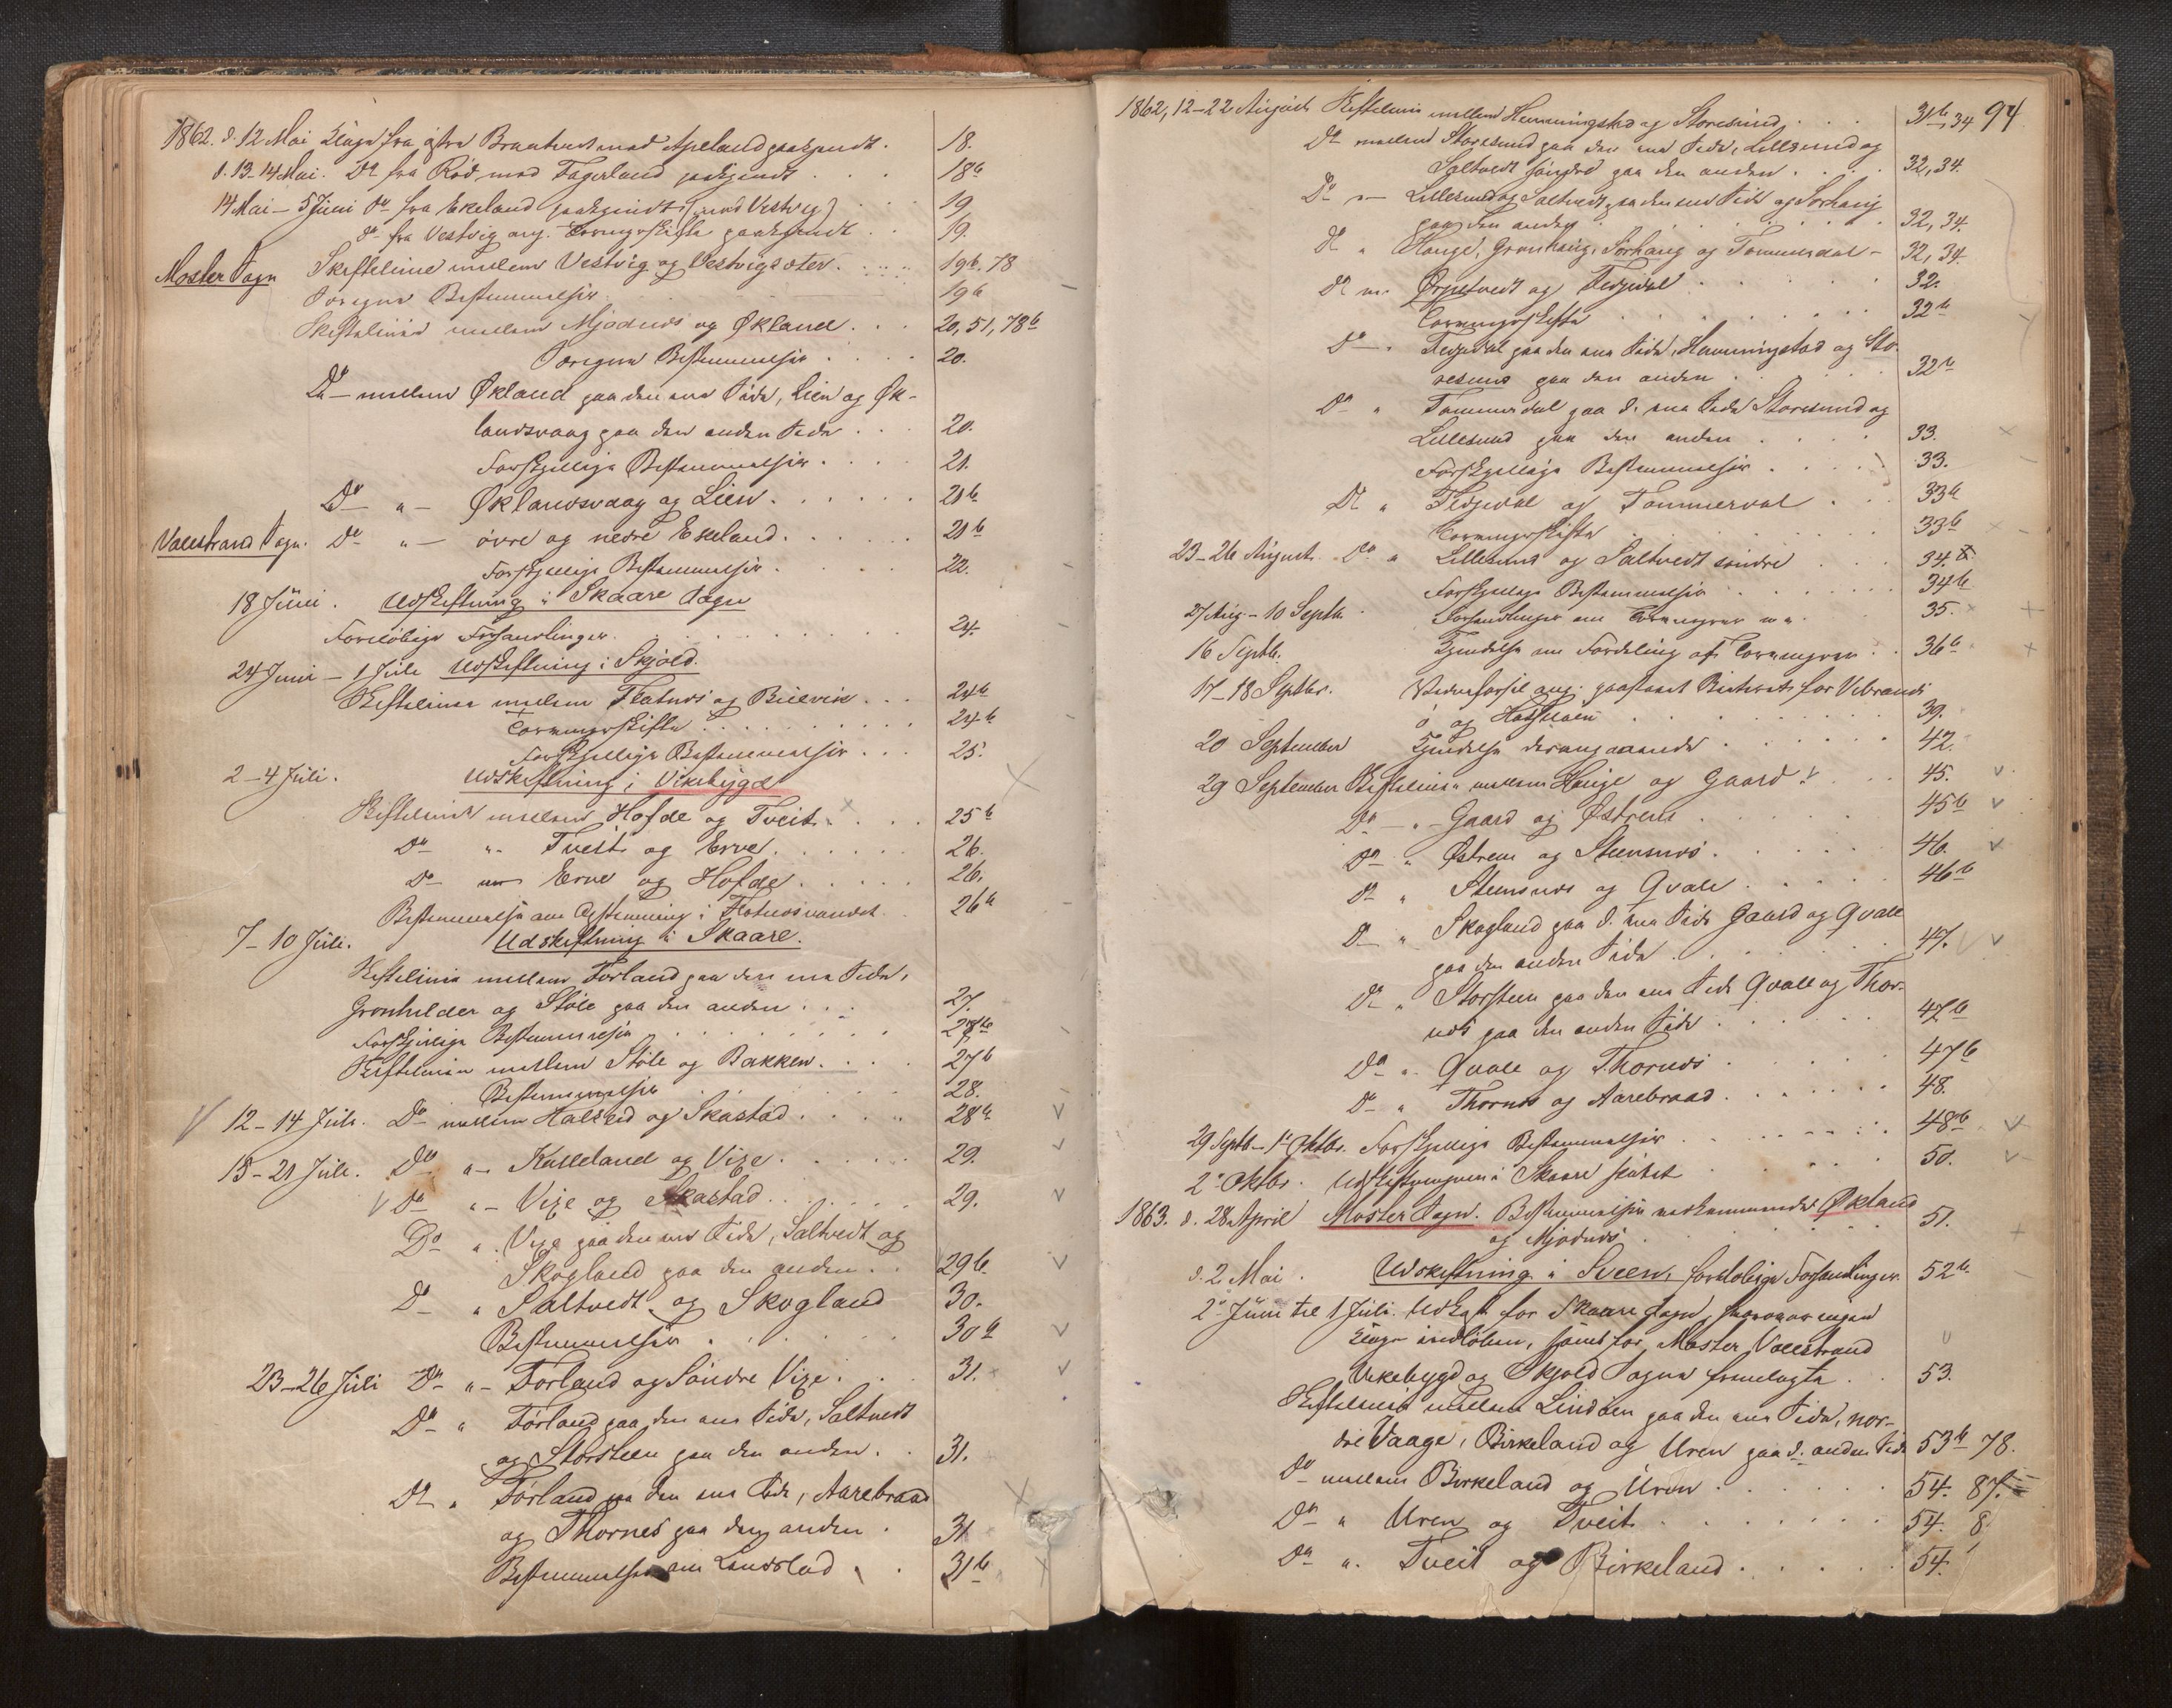 1862. d. 12 Mai Klage fra østre Braatvedt mod Apeland paakjendt. 18.
d. 13-14 Mai. Do fra Röd mod Fagerland paakjendt . . . 18b
14 Mai - 5 Juni Do fra Ekeland paakjendt (mod Vestvig) . . 19
do fra Vestvig ang. Torvmyrskifte paakjendt . . 19.
Moster Sogn Skiftelinie mellem Vestvig og Vestvigsæter. . . 19b. 78
Foregne Bestemmelser 19b
Skiftelinie mellem Mjødnæs og Økland . . . 20, 51, 78b
Foregne Bestemmelser . . . . 20.
Do - mellem Økland paa den ene Side, Lien og Øk-
landsvaag paa den anden Side . . . 20.
Forskjellige Bestemmelser . . . . 21.
Do - " - Øklandsvaag og Lien . . . . . . 21b.
Valestrand Sogn. Do " - övre og nedre Ekeland . . . . . 21b
Forskjellige Bestemmelser . . . . . 22.
18 Juni. Udskiftning i Skaare Sogn
Foreløbige Forhandlinger . . . . . . . . . 24.
24 Juni - 1 Juli Udskiftning i Skjold.
Skiftelinie mellem Flatnæs og Buevik . . . 24b
Torvmyrskifte . . . . . . . . . 24b
Forskjellige Bestemmelser . . . 25.
2-4 Juli. Udskiftning i Vikebygd
Skiftelinie mellem Hofde og Tveit . . . . 25b
Do " - Tveit og Erve . . . . . . 26.
Do Erve og Hofde . . . . . 26.
Bestemmelse om Opstemning i Flotnæsvandet. 26b
7-10 Juli. Udskiftning i Skaare.
Skiftelinie mellem Förland paa den ene Side,
Grønhilder og Støle paa den anden . . . 27.
Forskjellige Bestemmelser . . . . . . 27b
Skiftelinie mellem Støle og Bakken . . . 27b
Bestemmelser 28.
12-14 Juli. Do mellem Halseid og Skastad . . . . 28b
15-21 Juli. Do " - Kalleland og Vixe . . . . . 29.
Do " - Vixe og Skastad . . . . . . 29.
Do " Vixe paa den ene Side, Saltvedt og
Skogland paa den anden . . 29b.
Do " Saltvedt og Skogland 30.
Bestemmelser . . . . . . 30b
23-26 Juli Do " - Förland og Söndre Vixe . . . 31.
Do " Förland paa den ene Side, Saltvedt
og Storsteen paa den anden . . 31.
Do " Förland paa den ene Side, Aarebraad
og Thornes paa den anden . 31
Bestemmelse om Landsted . . 31b
94
1862, 12-22 August Skiftelinie mellem Hemmingstad og Storesund . . . 31b, 34
Do mellem Storesund paa den ene Side, Lillesund og
Saltvedt söndre paa den anden . . . . 32, 34.
Do " - Lillesund og Saltvedt paa den ene Side og Sörhaug
paa den anden . . . . . . . 32, 34.
Do " Hauge, Grønhaug, Sörhaug og Tömmerdal - 32, 34.
Do m. Ørpetvedt og Fedjedal . . . . . 32.
Torvmyrskifte . . . . . . . . 32b
Do - " Fedjedal paa den ene Side, Hemmingstad og Sto-
resund paa den anden . . . . . 32b
Do " Tømmerdal paa d. ene Side Storesund og
Lillesund paa den anden . . . . . 33.
Forskjellige Bestemmelser . . . . . 33.
Do " Fedjedal og Tømmerdal . . . 33b
Torvmyrskifte . . . . . . . . . 33b
23-26 August. Do " Lillesund og Saltvedt söndre . . . 34.
Forskjellige Bestemmelser . . . . . . . 34b
27 Aug - 10 Septb. Forhandlinger om Torvmyrer m.m. 35.
16 Septb. Kjendelse om Fordeling af Torvmyrer . . 36b
17-18 Septbr. Vidneforhör ang. paastaaet for Vibrands
ö og Hasseløen . . . . . . . . 39.
20 September Kjendelse desangaaende . . . . . . 42.
29 September Skiftelinie mellem Hauge og Gaard . . . 45.
Do - " - Gaard og Østrem . . . . . . 45b
Do " Østrem og Steensnæs . . . . . . 46.
Do " Steensnæs og Qvale . . . . . 46b
Do " Skogland paa d. ene Side Gaard og Qvale
paa den anden Side . . . . . . . 47.
Do " Storsteen paa den ene Side Qvale og Thor-
næs paa den anden Side . . . . . . 47b
Do " Qvale og Thornæs . . . . . . 47b
Do " Thornæs og Aarebraad . . . . . . 48.
29 Septb - 1ste Oktbr. Forskjellige Bestemmelser . . . . . . . 48b
2den Oktbr. Udskiftningen i Skaare sluttet . . . . . 50.
1863. d. 28 April Moster Sogn. Bestemmelser vedkommende Økland
og Mjødnæs . . . . . . . 51.
d. 2 Mai . Udskiftning i Sveen, foreløbige Forhandlinger. 52b.
2den Juni til 1 Juli. Udkast for Skaare Sogn, ingen
Klage indløben, samt for Moster, Valestrand
Vikebygd og Skjold Sogne fremlagte . . 53.
Skiftelinie mellem Lindøen paa den ene Side, nor-
dre Vaage, Birkeland og Uren paa d. anden Side 53b 78.
Do mellem Birkeland og Uren . . . . . . 54. 87.
Do " Uren og Tveit . . . . . . . 54. 8
Do " Tveit og Birkeland . . . . . . 54.